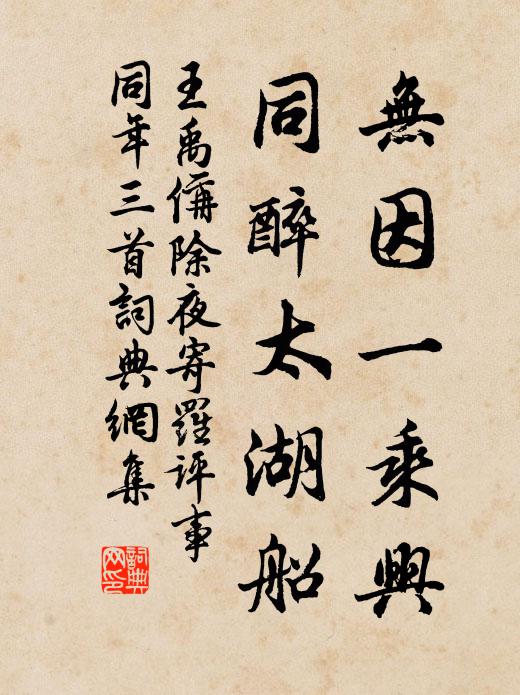 無因一乘興
同醉太湖船
王禹偁除夜寄羅評事
同年三首詞典網集
詞典
网印